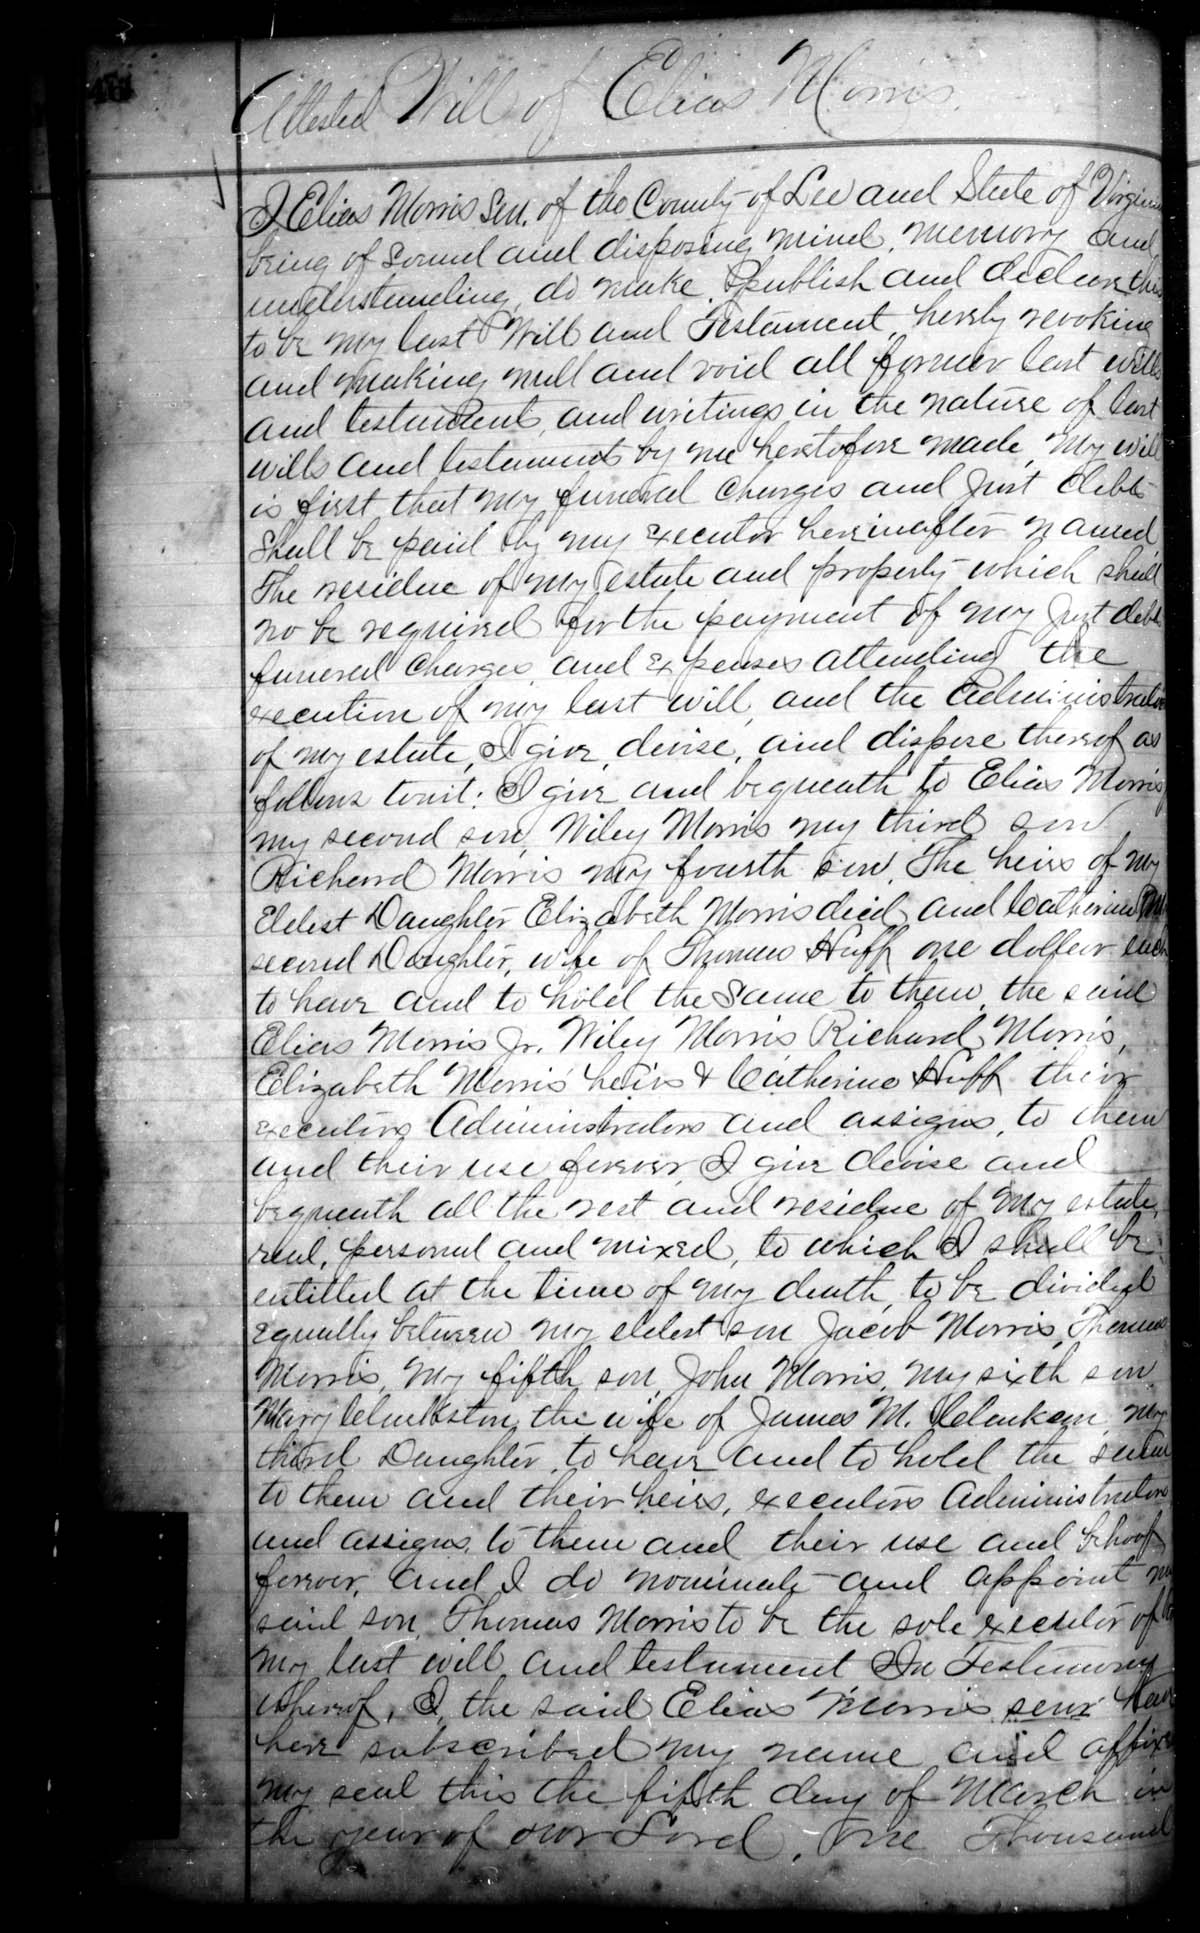 Attested Will of Elias Morris.
I Elias Morris Sen. of the County of Lee and State of Virginia
being of sound and disposing mind, memory and
understanding, do make, publish and declare this
to be my last Will and Testament, hereby revoking
and making null and void all former last wills
and testament, and writings in the nature of last
wills and testament by me heretofore made, My will
is first that my funeral charges and Just debts
Shall be paid by my executor hereinafter named
The residue of my estate and property which shall
no be required for the payment of my Just debts
funeral charges, and expenses attending the
execution of my last will, and the administration
of my estate, I give, devise, and dispose thereof as
follows towit: I give and bequeath to Elias Morris
my second son, Wiley Morris my third son
Richard Morris my fourth son, The heirs of my
Eldest Daughter Elizabeth Morris died, and Catherine my
second Daughter, wife of Thomas Huff one dollar each
to have and to hold the Same to them, the said
Elias Morris Jr. Wiley Morris Richard Morris,
Elizabeth Morris heirs & Catherine Huff their
executors Administrators and assigns, to them
and their use forever, I give devise and
bequeath all the rest and residue of my estate,
real, personal and mixed, to which I shall be
entitled at the time of my death, to be divided
equally between my eldest son Jacob Morris, Thomas
Morris, my fifth son, John Morris, my sixth son
Mary the wife of James M. my
third Daughter, to have and to hold the same
to them and their heirs, executors Administrators
and assigns, to them and their use and behoof
forever, And I do nominate and appoint my
said son, Thomas Morris to be the sole executor of
my last will and testament In Testimony
whereof, I, the said Elias Morris senr have
here subscribed my name and affixed
my seal this the fifth day of March in
the year of our Lord, one Thousand